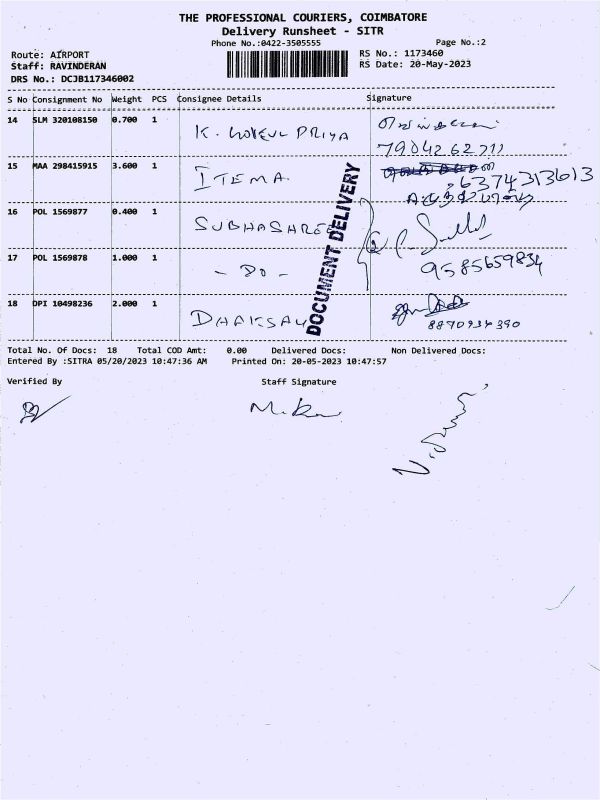 THE PROFESSIONAL COURIERS, COIMBATORE
Delivery Runsheet - SITR
Phone No.:0422-3505555 Page No.:2
Route: AIRPORT RS No.: 1173460
Staff: RAVINDERAN RS Date: 20-May-2023
DRS No.: DCJB117346002
S No Consignment No Weight PCS Consignee Details Signature
14 SLM 320108150 0.700 1 K. GOKUL PRIYA
79042 62711
15 MAA 298415915 3.600 1 ITEMA
6374313613
16 POL 1569877 0.400 1 SUBHASHREE
17 POL 1569878 1.000 1 - DO - 9585659834
18 DPI 10498236 2.000 1 DHAKSAN
8870934390
DOCUMENT DELIVERY
Total No. Of Docs: 18 Total COD Amt: 0.00 Delivered Docs: Non Delivered Docs:
Entered By :SITRA 05/20/2023 10:47:36 AM Printed On: 20-05-2023 10:47:57
Verified By Staff Signature